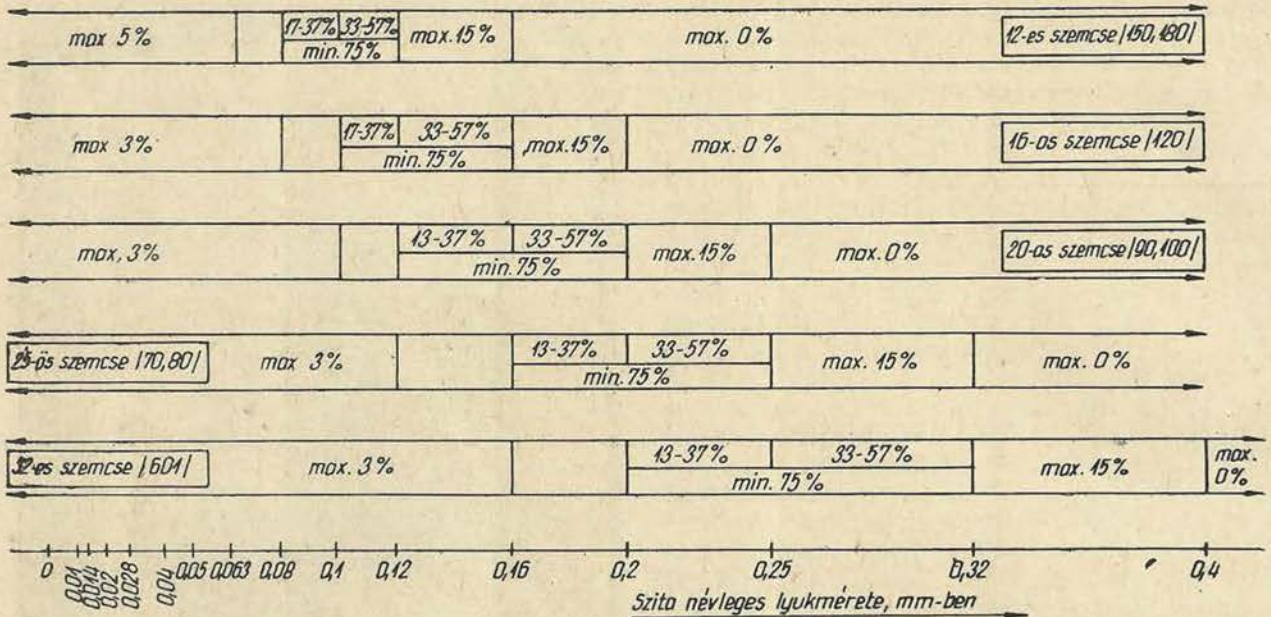 max 5% 17-37% 33-57% max. 15% max. 0% 12-es szemcse /150,180/
min. 75%
max 3% 17-37% 33-57% max. 15% max. 0% 16-os szemcse /120/
min. 75%
max. 3% 13-37% 33-57% max. 15% max. 0% 20-as szemcse /90,100/
min. 75%
25-ös szemcse /70,80/ max 3% 13-37% 33-57% max. 15% max. 0%
min. 75%
32-es szemcse /601/ max. 3% 13-37% 33-57% max. 15% max. 0%
min. 75%
0 0,01 0,014 0,02 0,028 0,04 0,05 0,063 0,08 0,1 0,12 0,16 0,2 0,25 0,32 0,4
Szita névleges lyukmérete, mm-ben